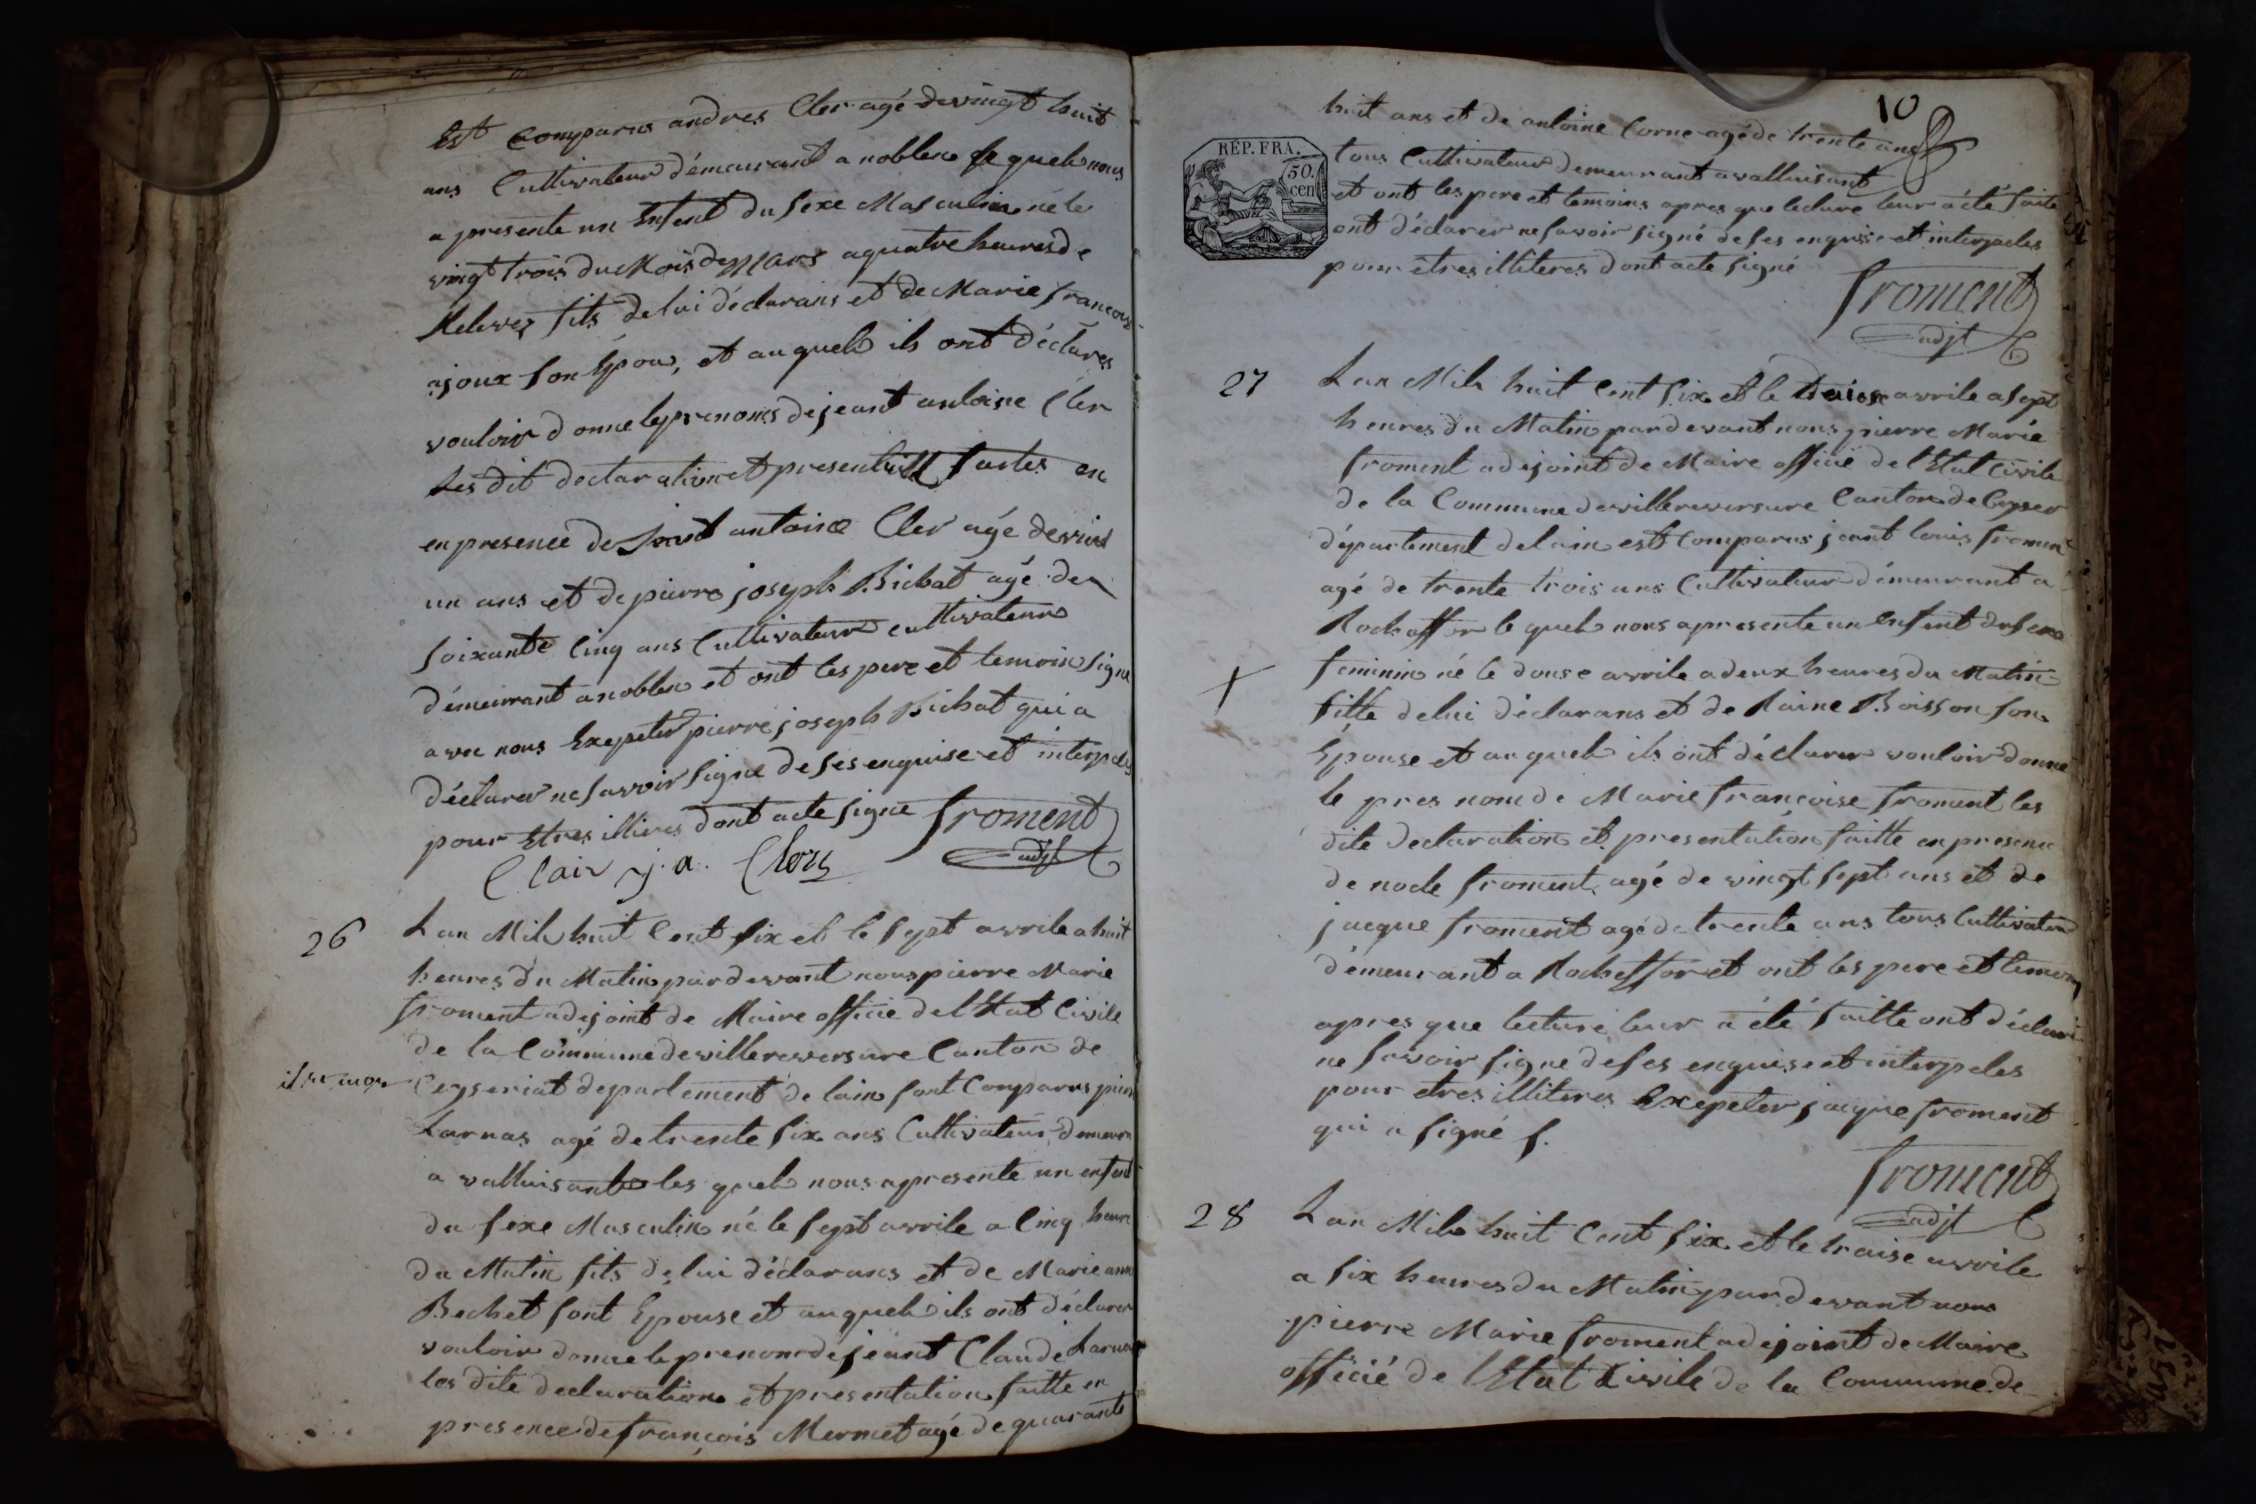 Est Comparus andres Cler agé de vingt huit
ans Cultivateur démeurant a noblen le quel nous
a presente un Enfent du sexe Masculin né le
vingt trois du Mois de Mars a quatre heures de
Relevez fils de lui déclarans et de Marie francoise
ajoux son Epou, et au quel ils ont déclares
vouloir donne le prenoms de jeant antoine Cler
Les dit declaration et presentation faites en
en presence de Jeant antoine Cler agé de vint
un ans et de pierre joseph Bichat agé de
soixante Cinq ans Cultivateur cultivateur
démeurant a noblen et ont les pere et temoin signe
avec nous Exepeter pierre joseph Bichat qui a
déclarer ne savoir signe de ses enquise et interpeles
pour Etres illieres dont acte signe froment
Clair j. a. Clery adjt
26 Lan Mil huit Cent six et le sept avrile a huit
heures du Matin par devant nous pierre Marie
froment adejoint de Maire officie de l'Etat Civile
de la Commune de villereversure Canton de
Ceyseriat departement de lain sont Comparus pierre
Larnas agé de trente six ans Cultivateur demeurn
a valluisant les quel nous a presente un enfent
du sexe Masculin né le sept avrile a Cinq heure
du Matin fils de lui déclarans et de Marie anne
Bechet sont Epouse et au quel ils ont déclarer
vouloir donne le prenom de jeant Claude Larnas
les dite declaration et presentation faitte en
presence de françois Mermet agé de quarante
10
RÉP. FRA.
50.
cen
huit ans et de antoine Corne agé de trente ans
tous Cultivateur demeurant a valluisant
et ont les pere et temoins apres que lecture leur a été faite
ont déclarer ne savoir signé de ses enquise et interpeles
pour êtres illiteres dont acte signé
froment
adjt
27 Lan Mil huit Cent six et le traise avrile a sept
heures du Matin par devant nous pierre Marie
froment adejoint de Maire officie de l'Etat Civile
de la Commune de villereversure Canton de Ceyser
département de lain est Comparus jeant louis fromen
agé de trente trois ans Cultivateur démeurant a
Rocheffor le quel nous a presente un enfent du sexe
feminin né le douse avrile a deux heures du Matin
fille de lui déclarans et de Raine Boisson son
Epouse et au quel ils ont déclarer vouloir donne
le pres nom de Marie françoise froment les
dite declaration et presentation faitte en presence
de node froment agé de vingt sept ans et de
jacque froment agé de trente ans tous Cultivateur
démeurant a Rocheffor et ont les pere et temoin
apres que lecture leur a été faitte ont déclare
ne savoir signe de ses enquise et interpeles
pour etres illiteres Exepeter jacque froment
qui a signé f.
froment
adjt
28 Lan Mil huit Cent six et le traise avrile
a six heures du Matin par devant nous
pierre Marie froment adejoint de Maire
officié de l'Etat Civile de la Commune de